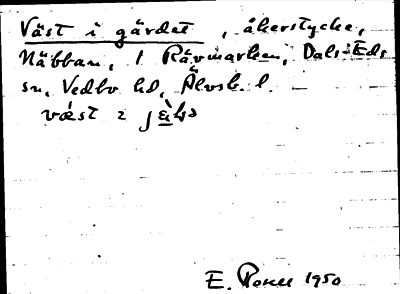 Väst i gärdet, åkerstycke,
Näbban, 1 Rävmarken, Dals-Eds
sn, Vedbo hd, Älvsb. l.
väst i
E. 1950